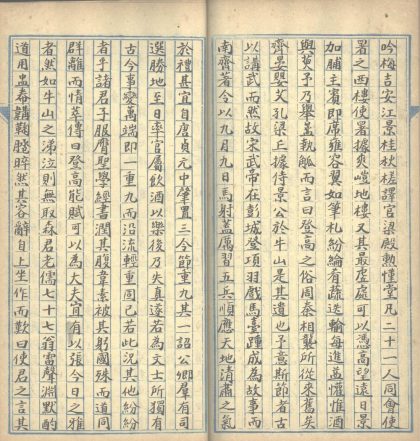 吟梅吉安江景桂秋槎譯官梁殿懃僅堂凡二十一人同會使
署之西樓使署據爽嵦地樓又其最處處可以憑高望遠日景
加脯主賓即席雍容翼如筆札紛綸看疏送輸每進益懽惟酒
與黄予乃舉盖執觚而言曰登高之俗周秦相襲所從來舊矣
齊晏嬰艾孔梁丘據侍景公於牛山是其遺也予意斯節者古
以講武而然故宋武帝在彭城登項羽戲馬臺踵成為故事而
南齊著令以九月九日馬射盖厲習五兵順應天地清肅之氣
於禮甚宜自唐貞元中肇置三令節重九其一詔公卿羣有司
選勝地至日率官属飲酒以樂後乃失真遂若為文士所獨有
古今事變萬端即一重九而沿流輕重固已若此況其他紛紛
者乎諸君子服膺聖學經書潤其腹韋素被其躬國殊而道同
群離而情萃傳曰登高能賦可以為大夫宜有以張今日之雅
者然如牛山之涕泣則無取森君老儒七十七翁雷聲淵默酌
道用盅希韝鞠跽睟然其容辭自上坐作而歎曰使君之言其